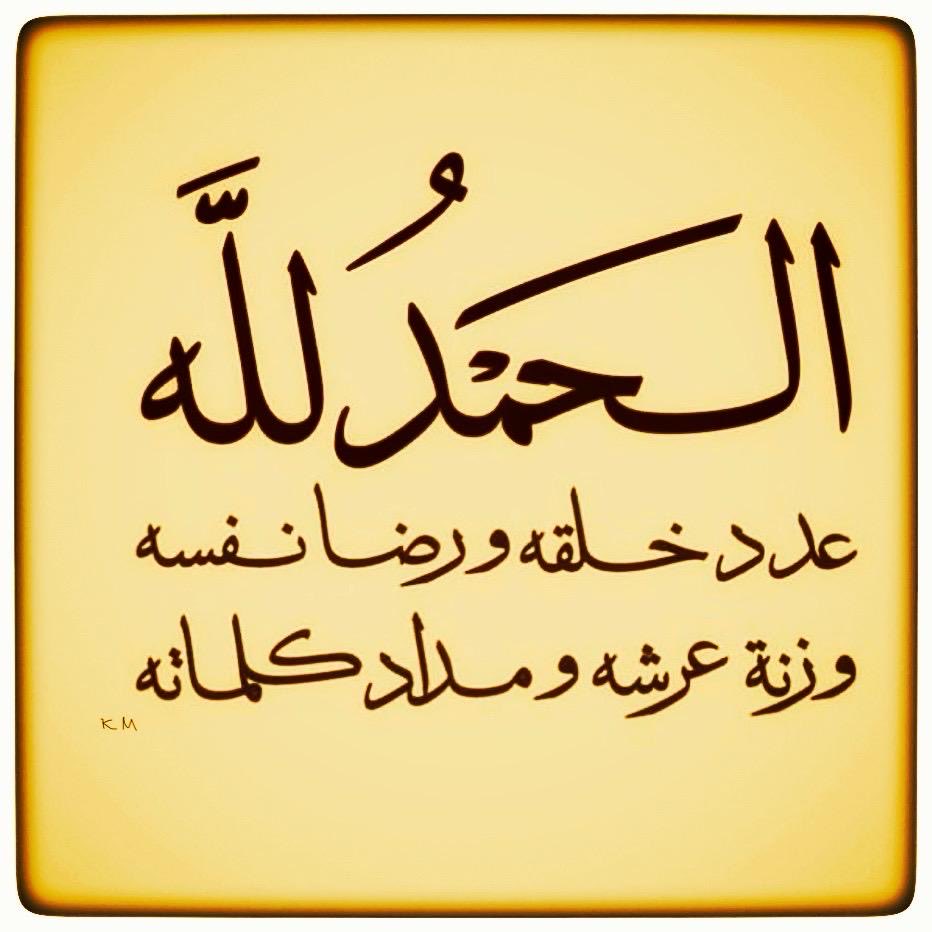 الحَمْدُ للّه
عدد خلقه و رضا نفسه
و زنة عرشه و مداد كلماته
KM